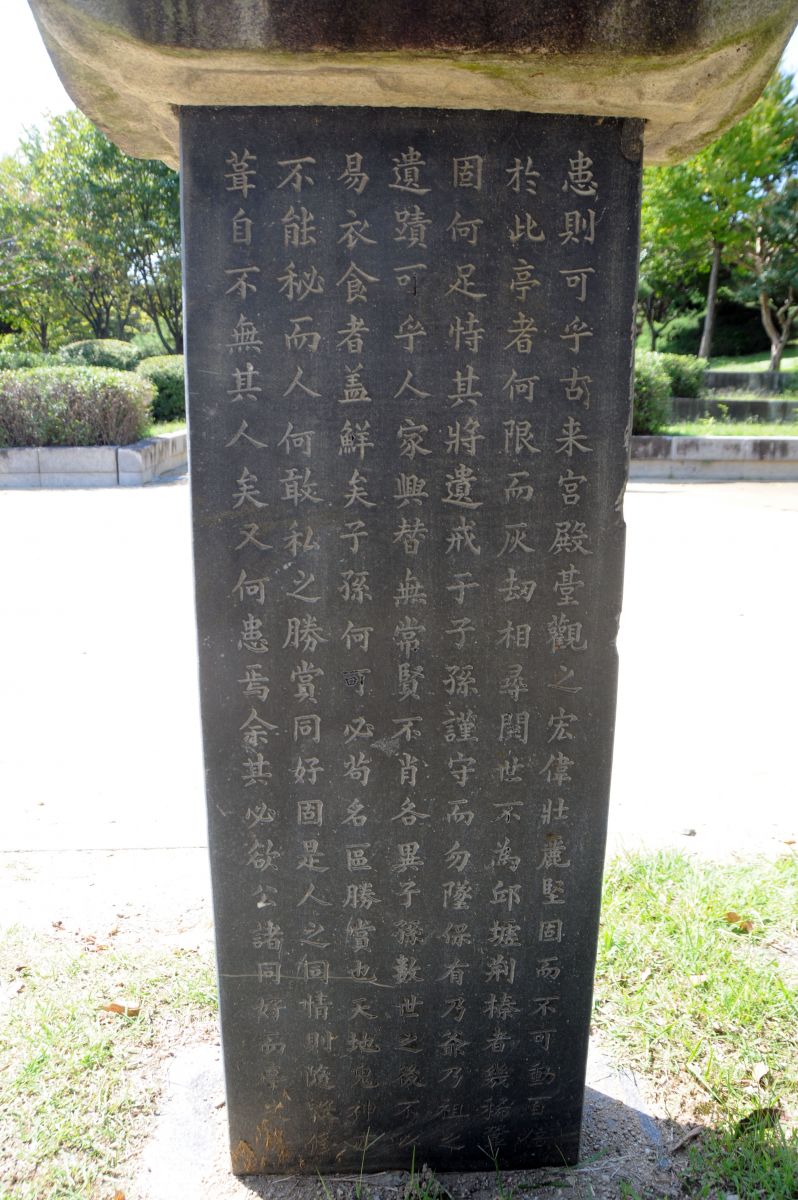 患則可乎古来宮殿臺觀之宏偉壯麗堅固而不可動百倍
於此亭者何限而灰劫相尋閱世不為邱墟荊榛者幾稀舊
固何足恃其將遺戒于子孫謹守而勿墜保有乃爺乃祖之
遺蹟可乎人家興替無常賢不肖各異子孫數世之後不以
易衣食者盖鮮矣子孫何可必苟名區勝償也天地鬼神
不能秘而人何敢私之勝賞同好固是人之同情則隨毀
葺自不無其人矣又何患焉余其必欲公諸同好而